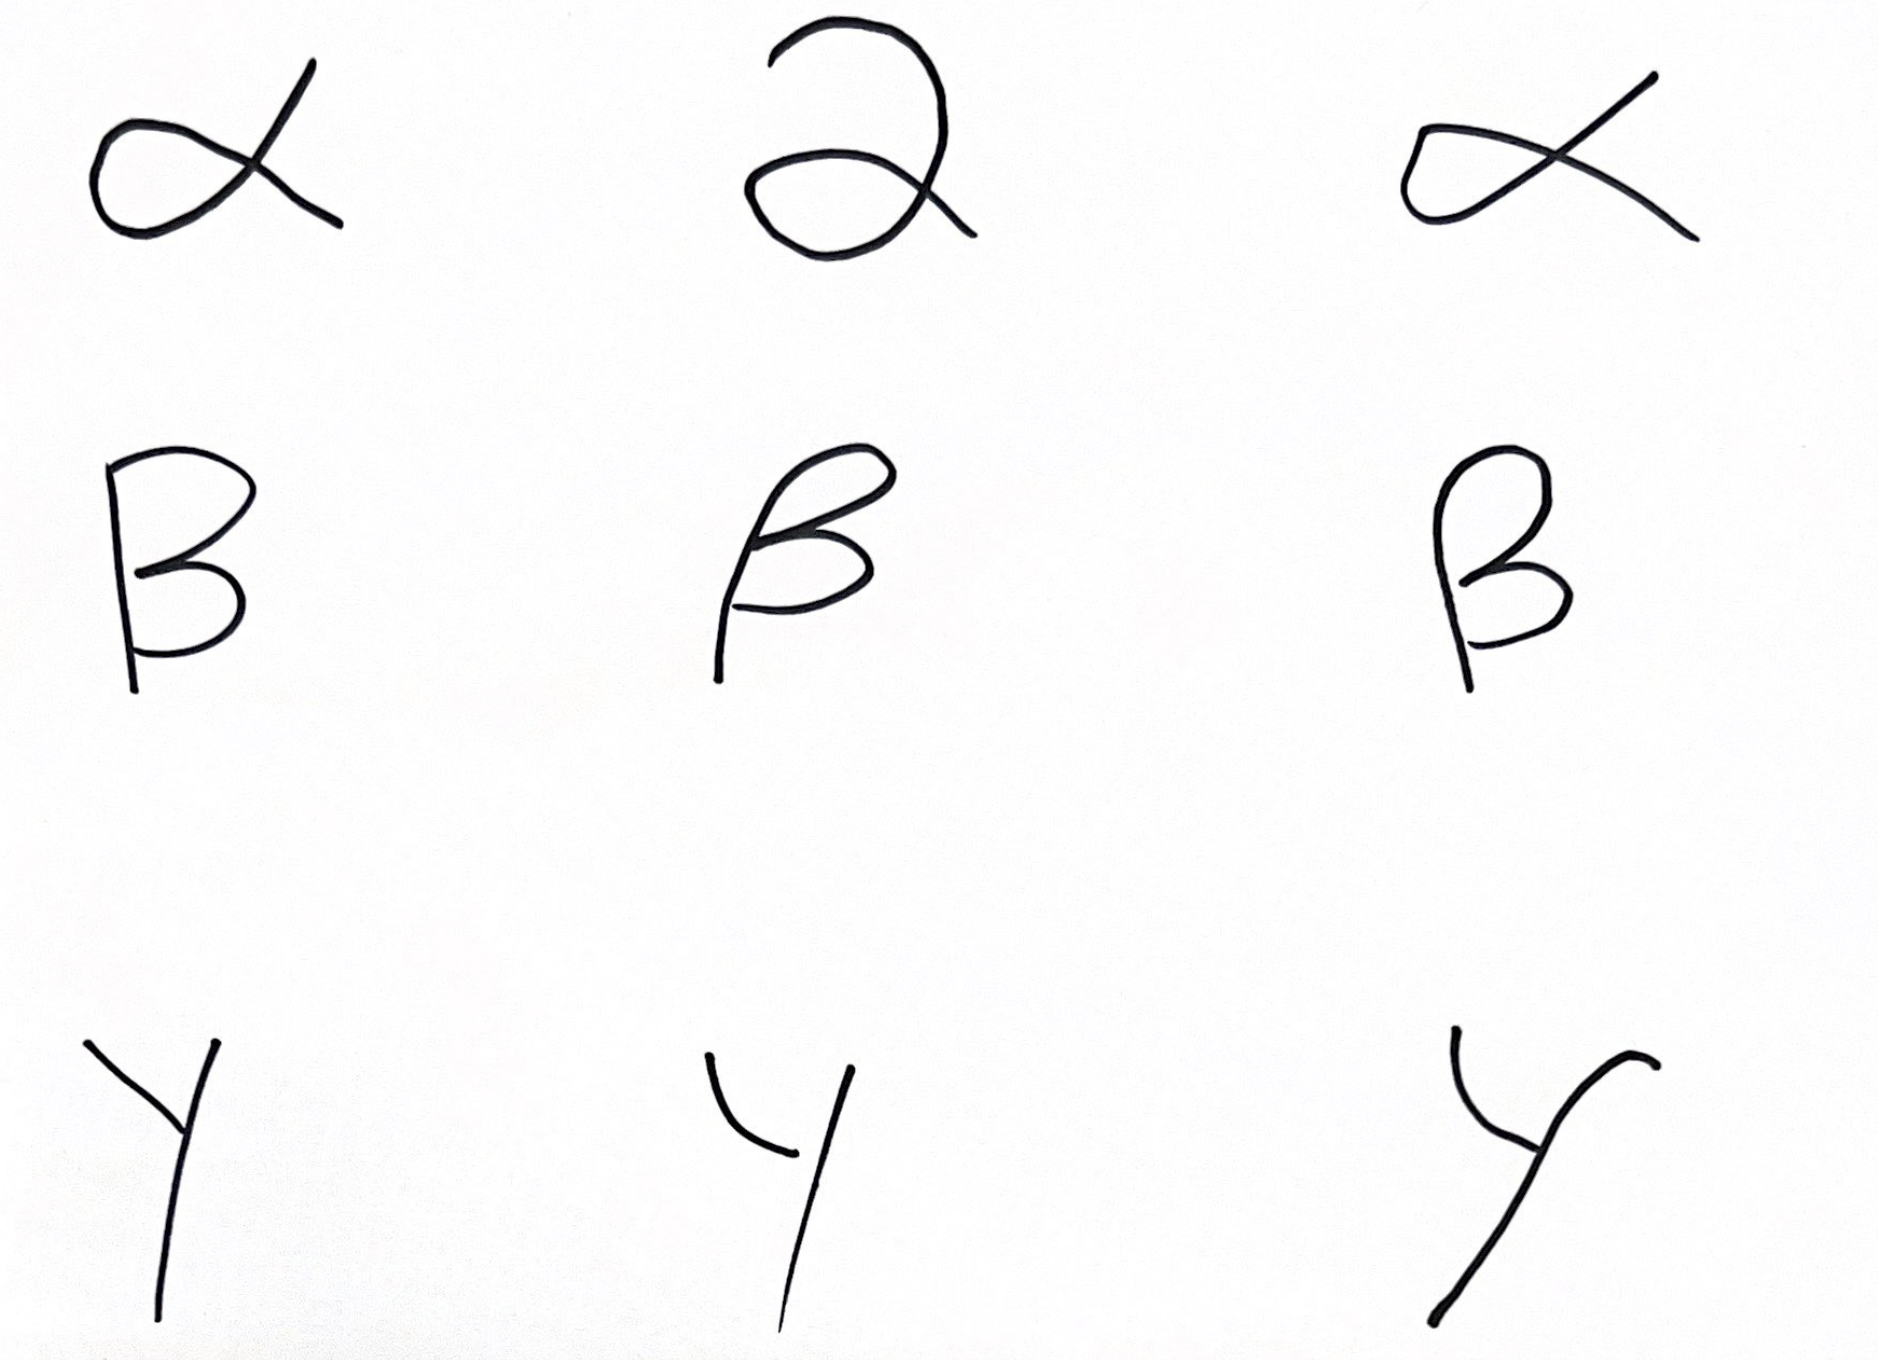 α ∂ α
β β β
γ γ γ